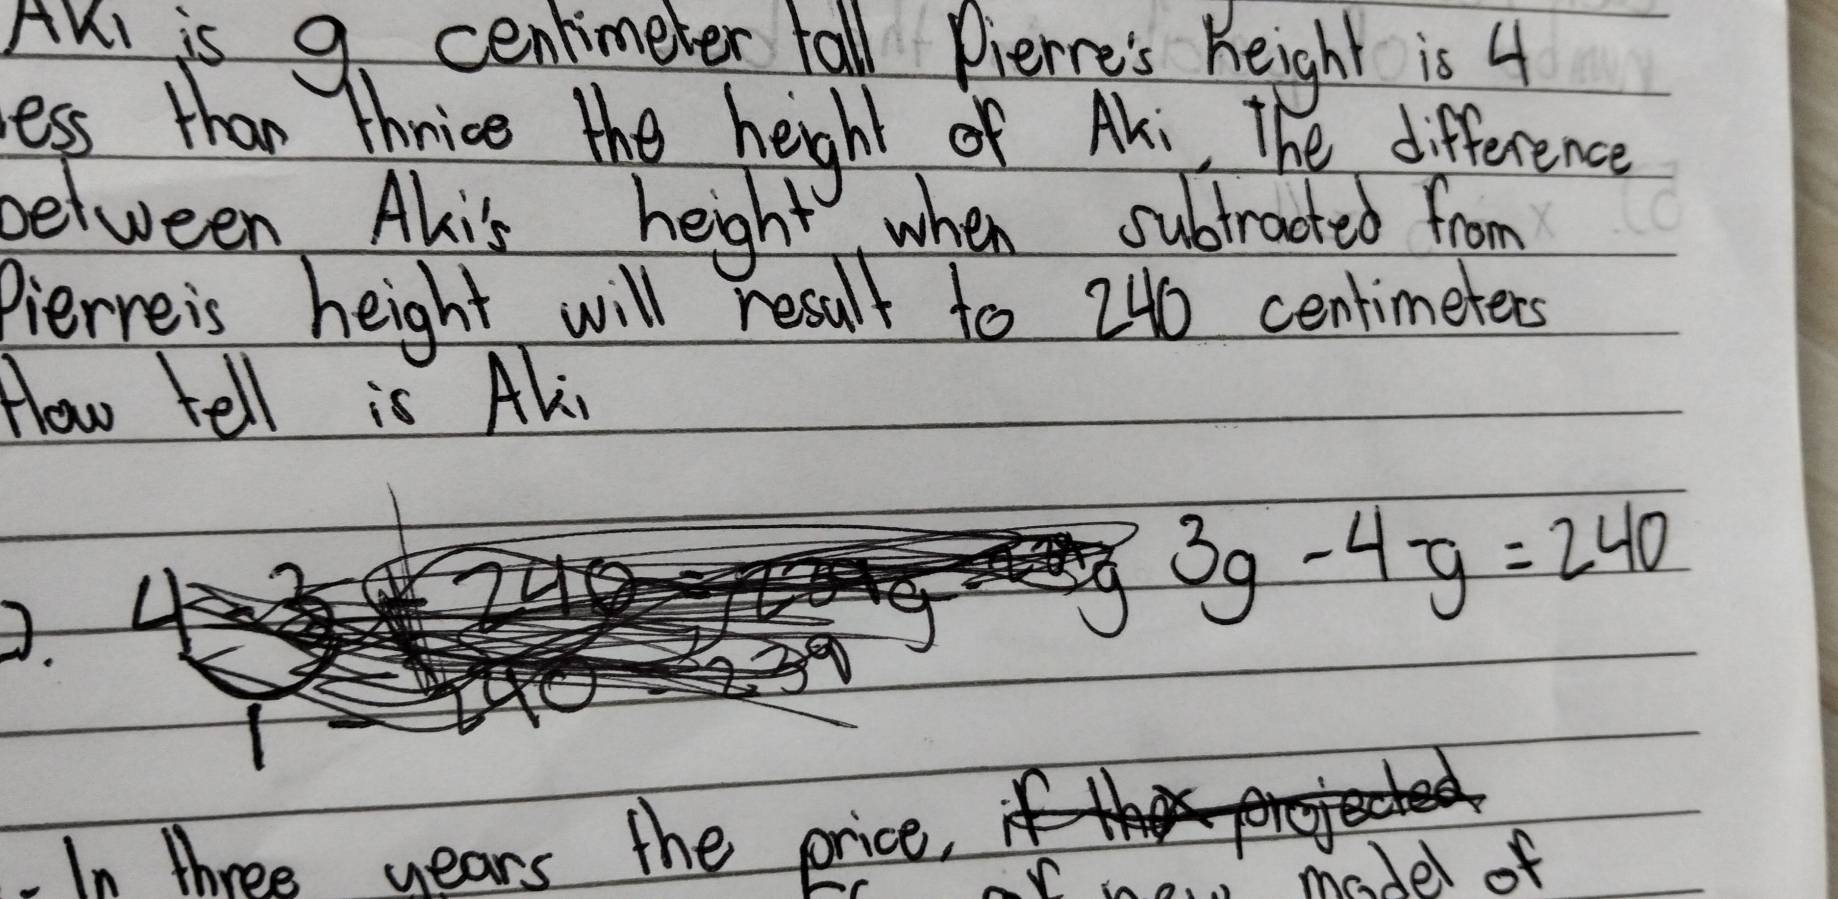 Aki is g centimeter tall Pierre's height is 4
less than thrice the height of Aki, The difference
between Aki's height when subtracted from
Pierreis height will result to 240 centimeters
How tell is Aki
2. 3g - 4 - g = 240
1 - 240 = 239
- In three years the price, if the projected
of new model of